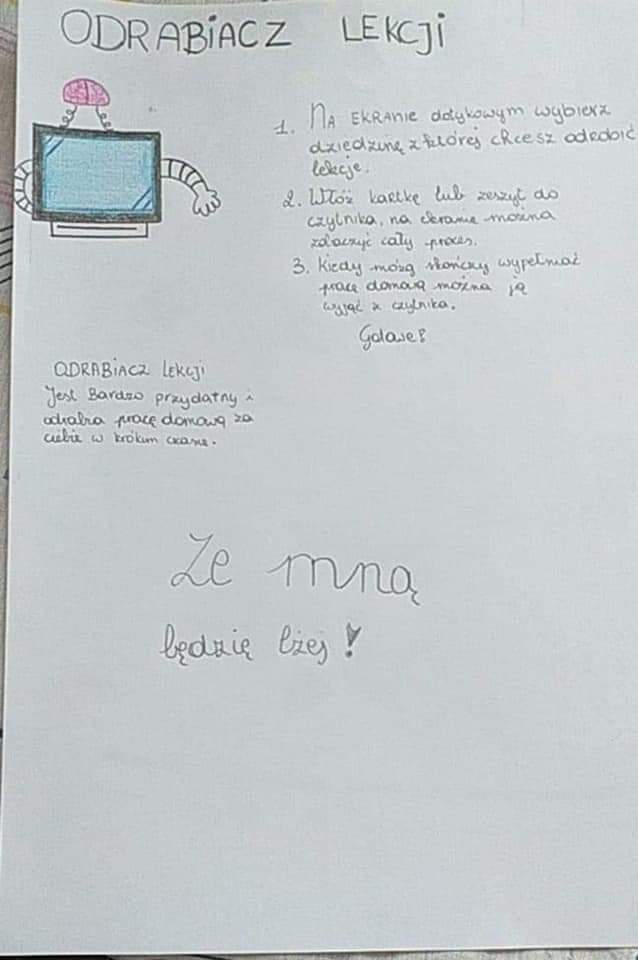 ODRABIACZ LEKCJI
1. NA EKRANIE dotykowym wybierz
dziedzinę z której chcesz odrobić
lekcje.
2. Włóż kartkę lub zeszyt do
czytnika, na ekranie można
zobaczyć cały proces.
3. Kiedy mózg skończy wypełniać
pracę domową można ją
wyjąć z czytnika.
Gotowe!
ODRABIACZ LEKCJI
Jest Bardzo przydatny i
odrabia pracę domową za
ciebie w krótkim czasie.
Ze mną
będzię lżej!